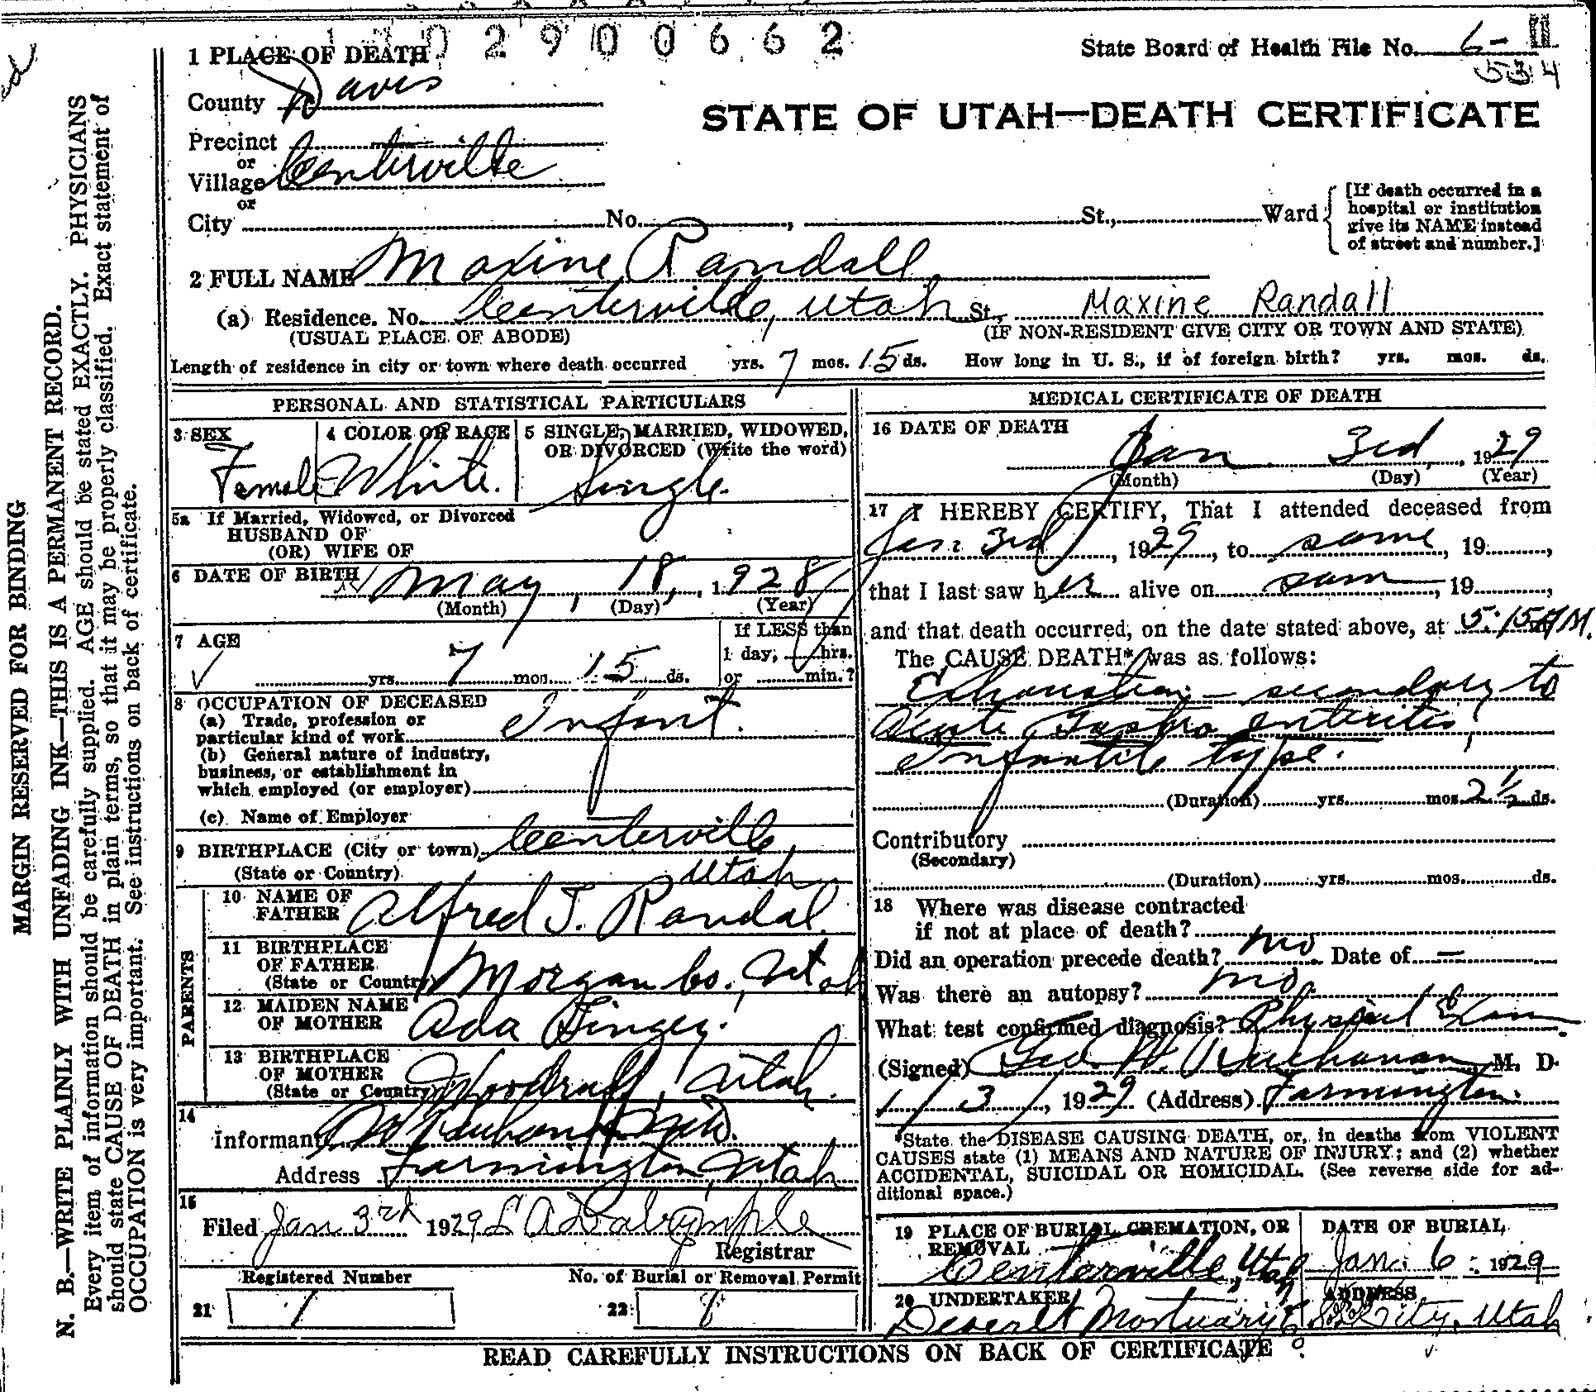 2900662
State Board of Health File No. 6-
534
1 PLACE OF DEATH
County Davis
STATE OF UTAH—DEATH CERTIFICATE
Precinct
or
Village Centerville
or
City No. , St., Ward
[If death occurred in a
hospital or institution
give its NAME instead
of street and number.]
2 FULL NAME Maxine Randall
(a) Residence. No. Centerville, Utah St. Maxine Randall
(USUAL PLACE OF ABODE) (IF NON-RESIDENT GIVE CITY OR TOWN AND STATE)
Length of residence in city or town where death occurred yrs. 7 mos. 15 ds. How long in U. S., if of foreign birth? yrs. mos. ds.
PERSONAL AND STATISTICAL PARTICULARS
3 SEX
Female
4 COLOR OR RACE
White.
5 SINGLE, MARRIED, WIDOWED,
OR DIVORCED (Write the word)
Single.
5a If Married, Widowed, or Divorced
HUSBAND OF
(OR) WIFE OF
6 DATE OF BIRTH May, 18, 1928
(Month) (Day) (Year)
7 AGE
yrs. 7 mos. 15 ds.
If LESS than
1 day, hrs.
or min.?
8 OCCUPATION OF DECEASED
(a) Trade, profession or
particular kind of work Infant.
(b) General nature of industry,
business, or establishment in
which employed (or employer)
(c) Name of Employer
9 BIRTHPLACE (City or town) Centerville,
(State or Country) Utah
PARENTS
10 NAME OF
FATHER Alfred J. Randal.
11 BIRTHPLACE
OF FATHER
(State or Country) Morgan Co., Utah
12 MAIDEN NAME
OF MOTHER Ada Tingey.
13 BIRTHPLACE
OF MOTHER
(State or Country) Woodruff, Utah.
14
Informant
Address Farmington, Utah
15
Filed Jan 3rd 1929 L A Dalrymple
Registrar
Registered Number No. of Burial or Removal Permit
21 1 22
MEDICAL CERTIFICATE OF DEATH
16 DATE OF DEATH
Jan 3rd, 1929
(Month) (Day) (Year)
17 I HEREBY CERTIFY, That I attended deceased from
Jan. 3rd, 1929, to same, 19 ,
that I last saw her alive on sam, 19 ,
and that death occurred, on the date stated above, at 5:15 A M.
The CAUSE DEATH* was as follows:
Exhaustion — secondary to
Acute Gastro enteritis,
Infantile type.
(Duration) yrs. mos. 2½ ds.
Contributory
(Secondary)
(Duration) yrs. mos. ds.
18 Where was disease contracted
if not at place of death?
Did an operation precede death? no. Date of —
Was there an autopsy? no.
What test confirmed diagnosis? Physical Exam.
(Signed) Geo W. Buchanan M. D.
1/3/, 1929 (Address) Farmington.
*State the DISEASE CAUSING DEATH, or, in deaths from VIOLENT
CAUSES state (1) MEANS AND NATURE OF INJURY; and (2) whether
ACCIDENTAL, SUICIDAL OR HOMICIDAL. (See reverse side for ad-
ditional space.)
19 PLACE OF BURIAL, CREMATION, OR
REMOVAL
Centerville, Utah
DATE OF BURIAL
Jan. 6 1929
20 UNDERTAKER
Deseret Mortuary Co
ADDRESS
S L City, Utah
READ CAREFULLY INSTRUCTIONS ON BACK OF CERTIFICATE
MARGIN RESERVED FOR BINDING
N. B.—WRITE PLAINLY WITH UNFADING INK—THIS IS A PERMANENT RECORD.
Every item of information should be carefully supplied. AGE should be stated EXACTLY. PHYSICIANS
should state CAUSE OF DEATH in plain terms, so that it may be properly classified. Exact statement of
OCCUPATION is very important. See instructions on back of certificate.